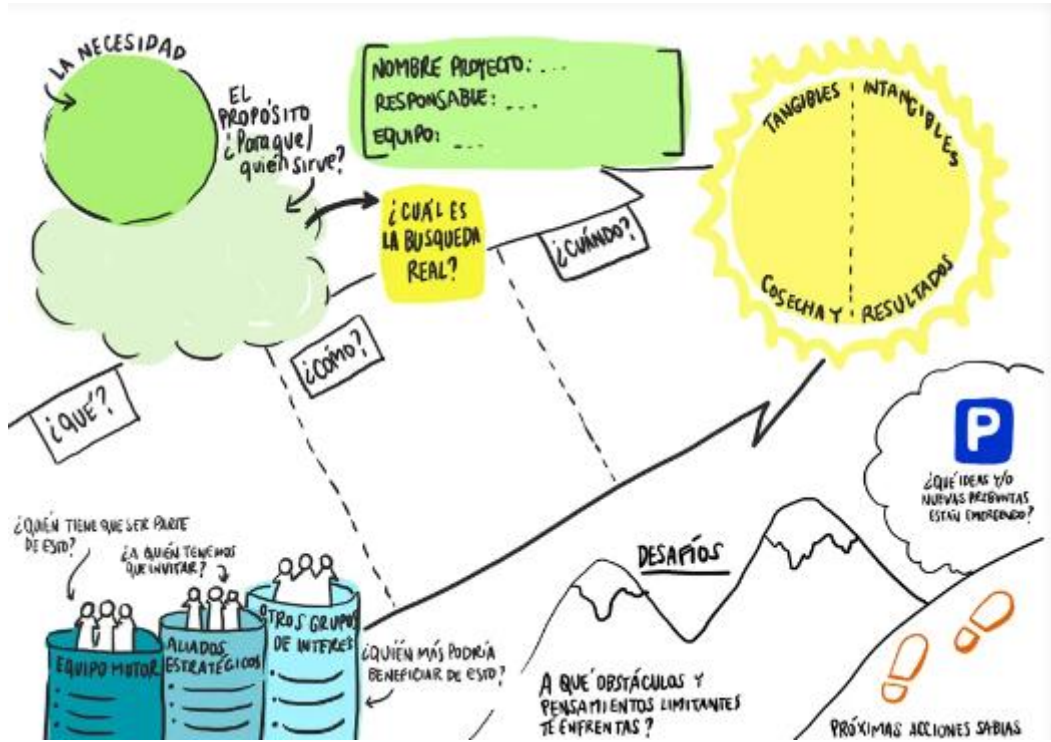 LA NECESIDAD
EL
PROPÓSITO
¿Para que/
quién sirve?
NOMBRE PROYECTO: ...
RESPONSABLE: ...
EQUIPO: ...
TANGIBLES
INTANGIBLES
COSECHA Y
RESULTADOS
¿CUÁL ES
LA BUSQUEDA
REAL?
¿CUÁNDO?
¿CÓMO?
¿QUÉ?
P
¿QUÉ IDEAS Y/O
NUEVAS PREGUNTAS
ESTÁN EMERGIENDO?
¿QUIÉN TIENE QUE SER PARTE
DE ESTO?
¿A QUIÉN TENEMOS
QUE INVITAR?
EQUIPO MOTOR
ALIADOS
ESTRATÉGICOS
OTROS GRUPOS
DE INTERÉS
¿QUIÉN MÁS PODRÍA
BENEFICIAR DE ESTO?
DESAFÍOS
A QUÉ OBSTÁCULOS Y
PENSAMIENTOS LIMITANTES
TE ENFRENTAS?
PRÓXIMAS ACCIONES SABIAS